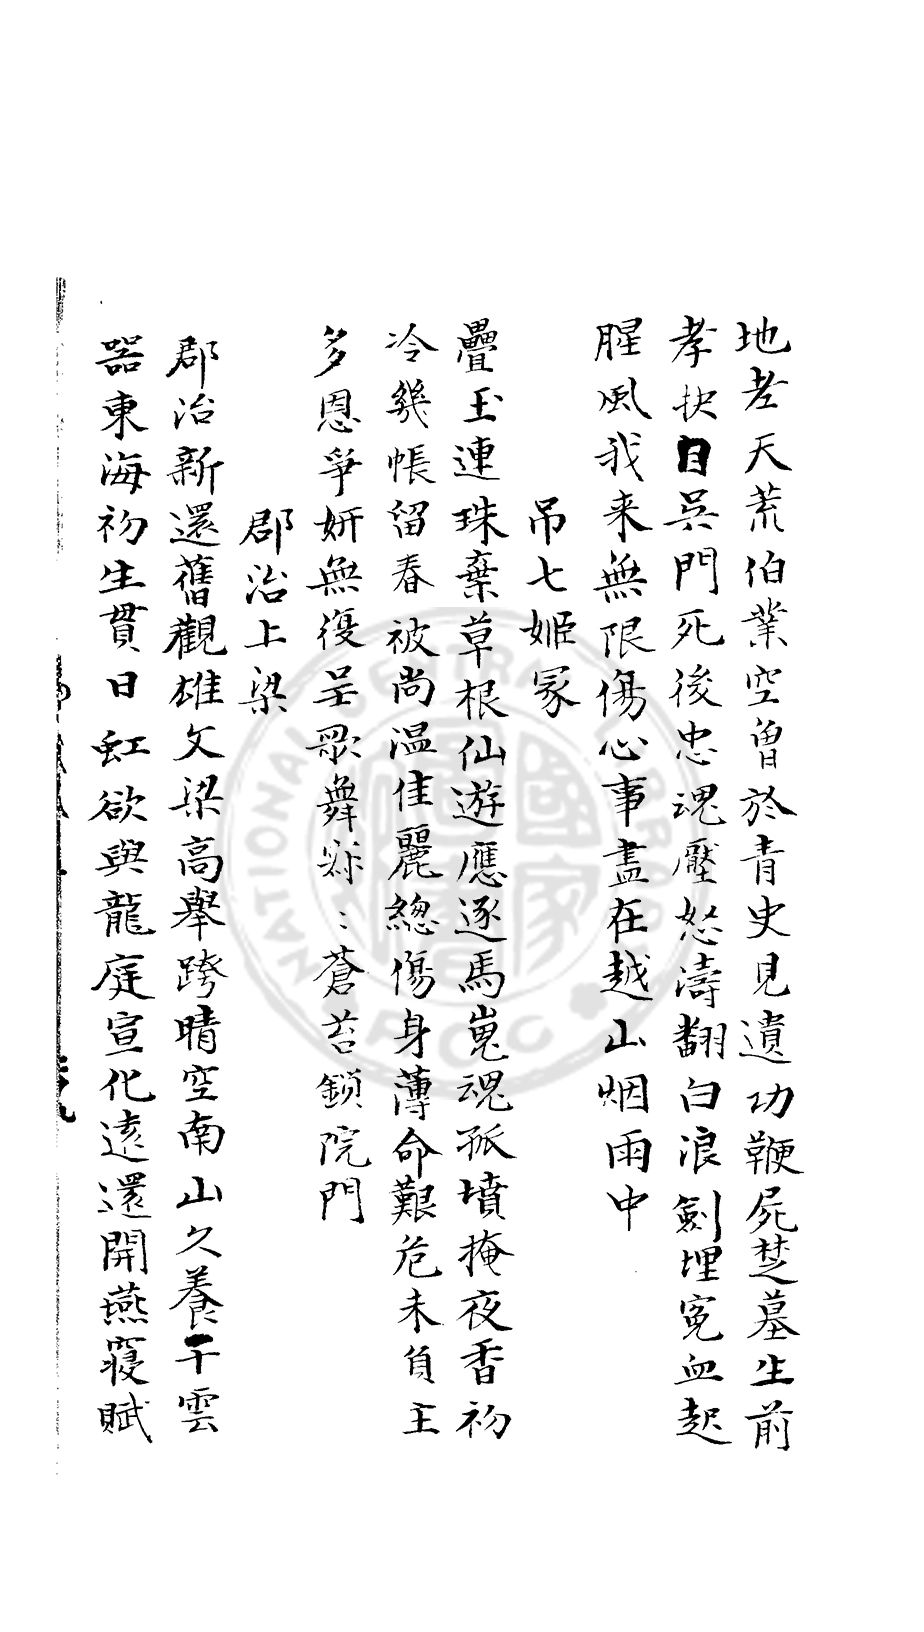 地老天荒伯業空曾於青史見遺功鞭屍楚墓生前
孝抉目吳門死後忠魂壓怒濤翻白浪劍埋寃血起
腥風我来無限傷心事盡在越山烟雨中
吊七姬冢
疊玉連珠棄草根仙遊應逐馬嵬魂孤墳掩夜香初
冷幾帳留春被尚温佳麗總傷身薄命艱危未負主
多恩爭妍無復呈歌舞寂〻蒼苔鎖院門
郡治上梁
郡治新還舊觀雄文梁高舉跨晴空南山久養干雲
器東海初生貫日虹欲與龍庭宣化遠還開燕寢賦
NATIONAL CENTRAL LIBRARY
ROC
國家圖書館